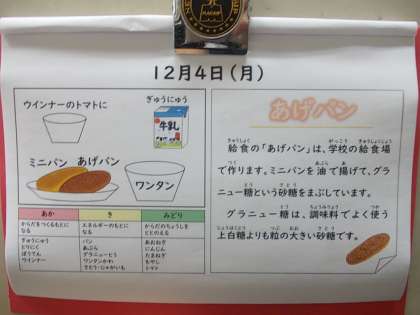 12月4日(月)
ウインナーのトマトに
ぎゅうにゅう
牛乳
ミニパン あげパン
ワンタン
あか き みどり
からだをつくるもとになる エネルギーのもとになる からだのちょうしをととのえる
ぎゅうにゅう パン あおねぎ
とりにく あぶら にんじん
ぼうてん グラニューとう たまねぎ
ウインナー ワンタンかわ もやし
さとう・じゃがいも トマト
あげパン
給食の「あげパン」は、学校の給食場
で作ります。ミニパンを油で揚げて、グラ
ニュー糖という砂糖をまぶしています。
グラニュー糖は、調味料でよく使う
上白糖よりも粒の大きい砂糖です。